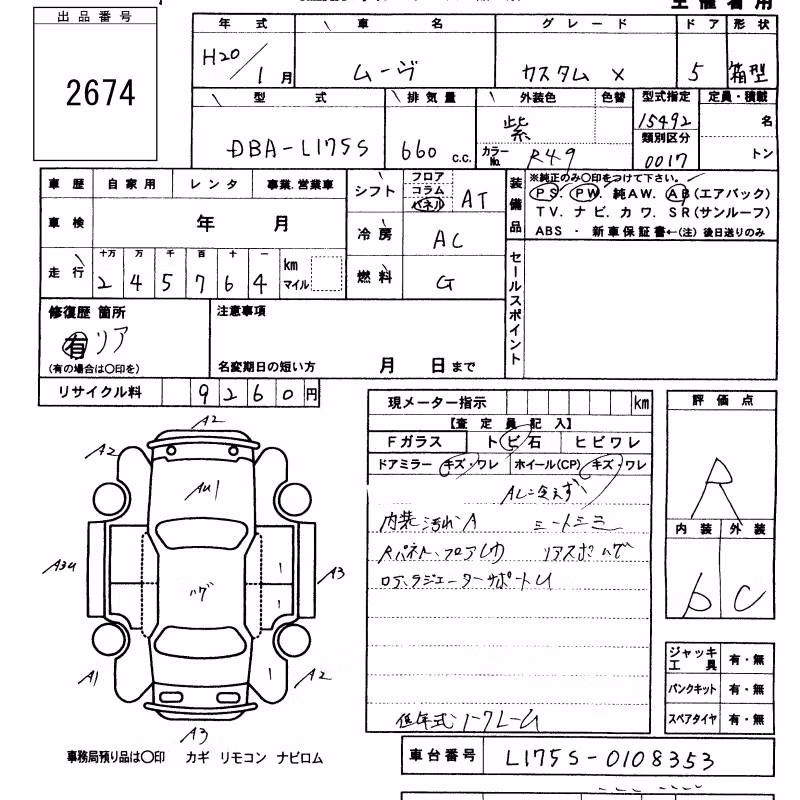 主催者用
出品番号
2674
年式 車名 グレード ドア 形状
H20/1月 ムーヴ カスタム X 5 箱型
型式 排気量 外装色 色替 型式指定 定員・積載
DBA-L175S 660 c.c. 紫 15492 名
カラーNo. R49 類別区分 0017 トン
車歴 自家用 レンタ 事業.営業車
車検 年 月
十万 万 千 百 十 一
走行 2 4 5 7 6 4 km マイル
シフト フロア コラム パネル AT
冷房 AC
燃料 G
装備品
※純正のみ○印をつけて下さい。
PS. PW. 純AW. AB(エアバック)
TV. ナビ. カワ. SR(サンルーフ)
ABS ・ 新車保証書←(注) 後日送りのみ
セールスポイント
修復歴 箇所
有 リア
(有の場合は○印を)
注意事項
名変期日の短い方 月 日まで
リサイクル料 9260円
現メーター指示 km
【査定員記入】
Fガラス トビ石 ヒビワレ
ドアミラー キズ・ワレ ホイール(CP) キズ・ワレ
内装汚れA
Rパネル、フロア
リアスポ ハゲ
ロア、ラジエーターサポート
低年式
評価点
R
内装 外装
b C
ジャッキ工具 有・無
パンクキット 有・無
スペアタイヤ 有・無
A2
A2
AU1
A3
ハゲ
A3
1
1
A1
1
A2
A3
事務局預り品は○印 カギ リモコン ナビロム
車台番号 L175S-0108353